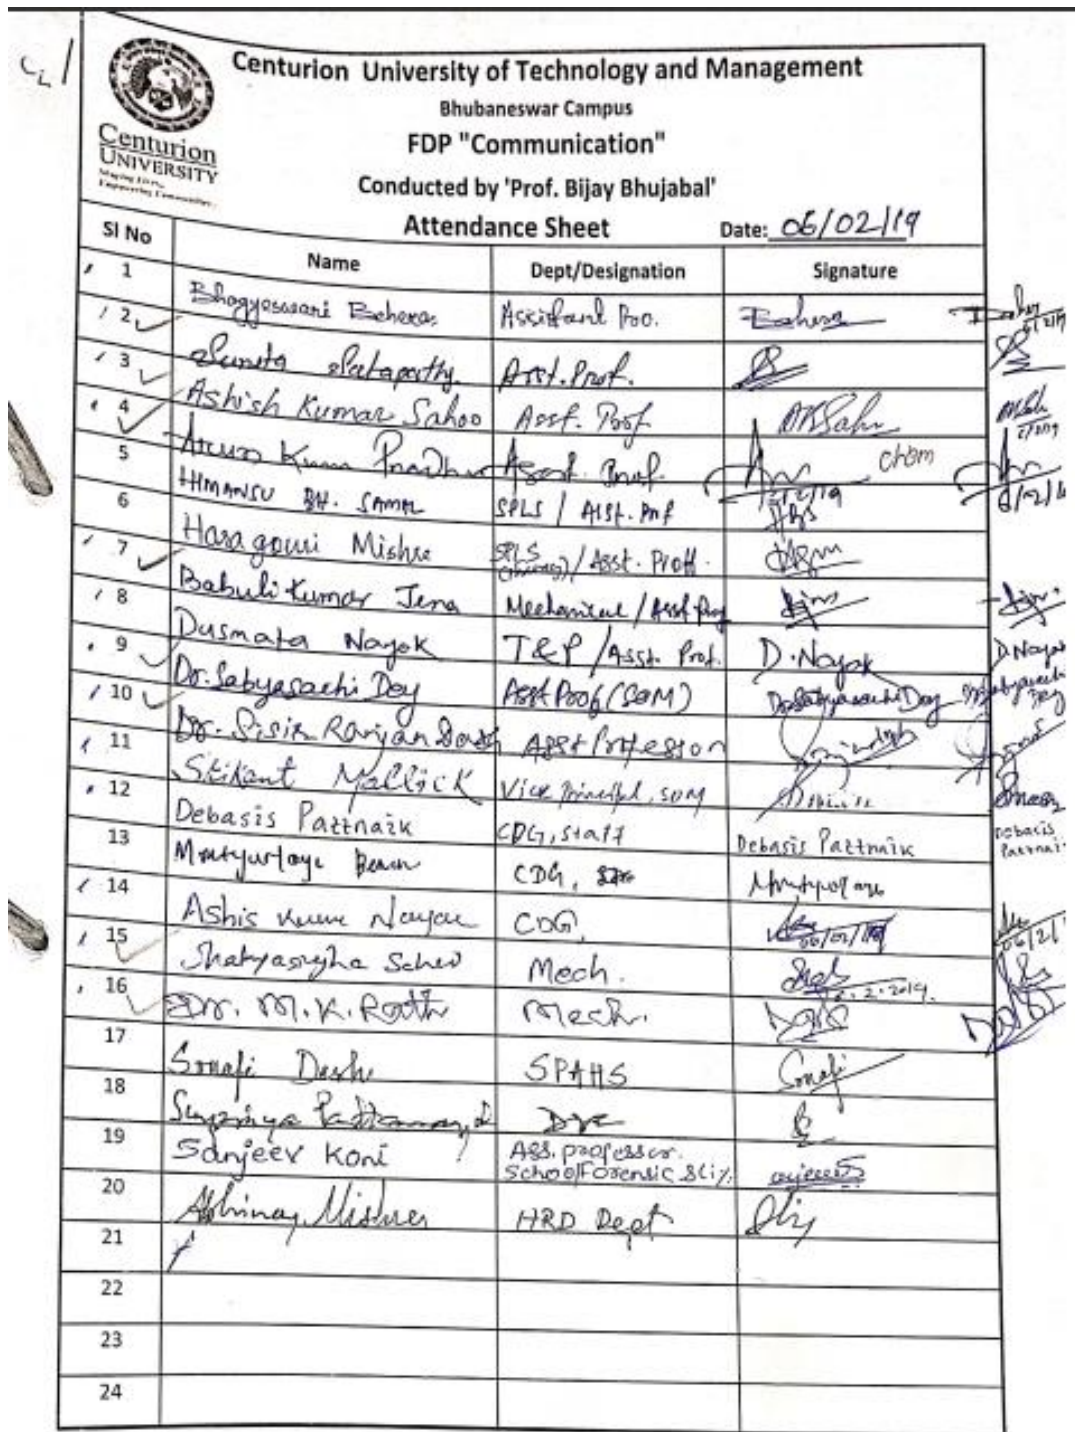 CL/
Centurion University of Technology and Management
Bhubaneswar Campus
FDP "Communication"
Centurion
UNIVERSITY
Conducted by 'Prof. Bijay Bhujabal'
Attendance Sheet Date: 06/02/19
Sl No Name Dept/Designation Signature
1 Bhagyeswari Behera Assistant Pro. Behera
2 Sunita Satapathy Asst. Prof.
3 Ashish Kumar Sahoo Asst. Prof AKSahu
4 Arun Kumar Pradhan Asst. Prof. Chem
5 HIMANSU BH. SAMAL SPLS / Asst. Prof
6 Haragouri Mishra SPLS / Asst. Proff.
7 Babuli Kumar Jena Mechanical / Asst Prof
8 Dusmata Nayak T&P / Asst. Prof. D. Nayak D. Nayak
9 Dr. Sabyasachi Dey Asst Prof (SOM) Dr. Sabyasachi Dey Dr. Sabyasachi Dey
10 Dr. Sisir Ranjan Dash Asst Professor
11 Srikant Mallick Vice Principal, SOM
12 Debasis Pattnaik CDG, Staff Debasis Pattnaik Debasis Pattnaik
13 CDG,
14 Ashis CDG,
15 Sahoo Mech. 2.2019.
16 Dr. M.K. Rath Mech.
17 Sonali Dash SPAHS Sonali
18 Supriya
19 Sanjeev Koni Ass. professor.
School Forensic
20 Abhinav Mishra HRD Dept
21
22
23
24